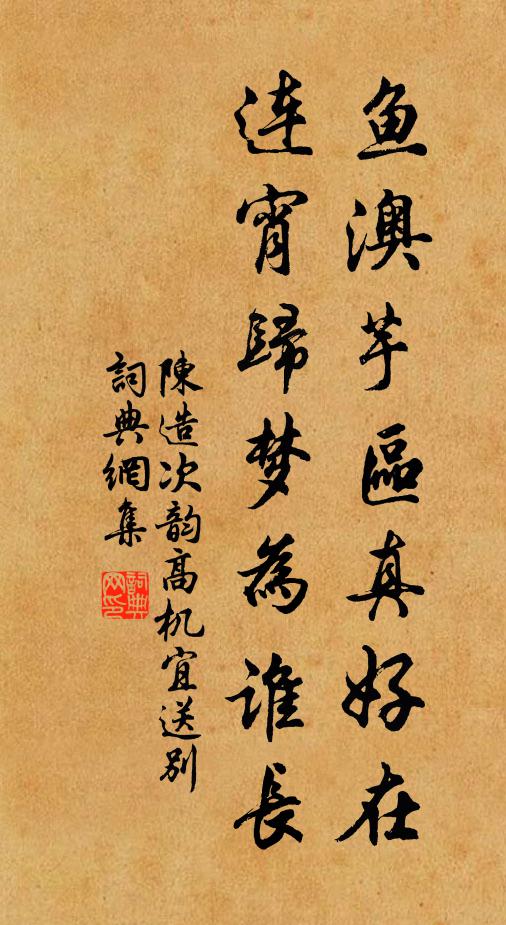 鱼澳芋區真好在
连宵歸梦為谁長
陳造次韵高机宜送别
詞典網集
詞典网印